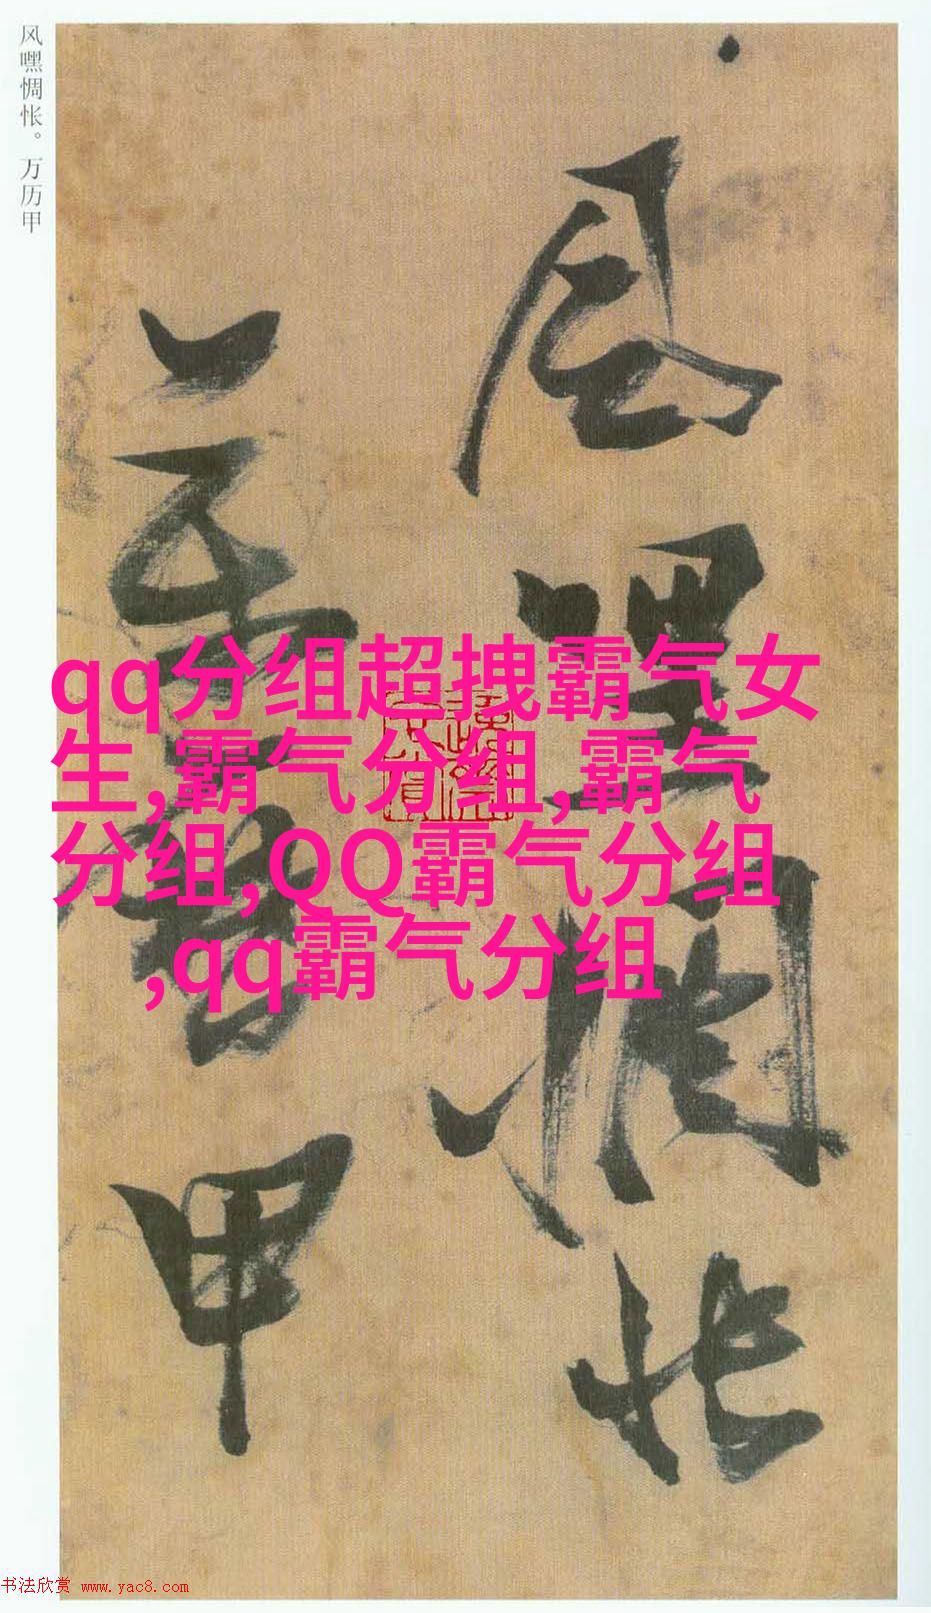 风嘿惆怅。万历甲
风嘿惆怅
万历甲
qq分组超拽霸气女
生,霸气分组,霸气
分组,QQ霸气分组
,qq霸气分组
书法欣赏 www.yac8.com